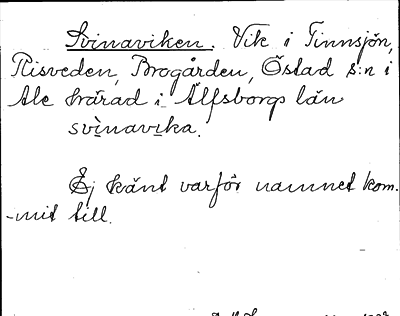 Svinaviken. Vik i Tinnsjön,
Risveden, Brogården, Östad s:n i
Ale härad i Älfsborgs län
svìnavıka.
Ej känt varför namnet kom-
-mit till.